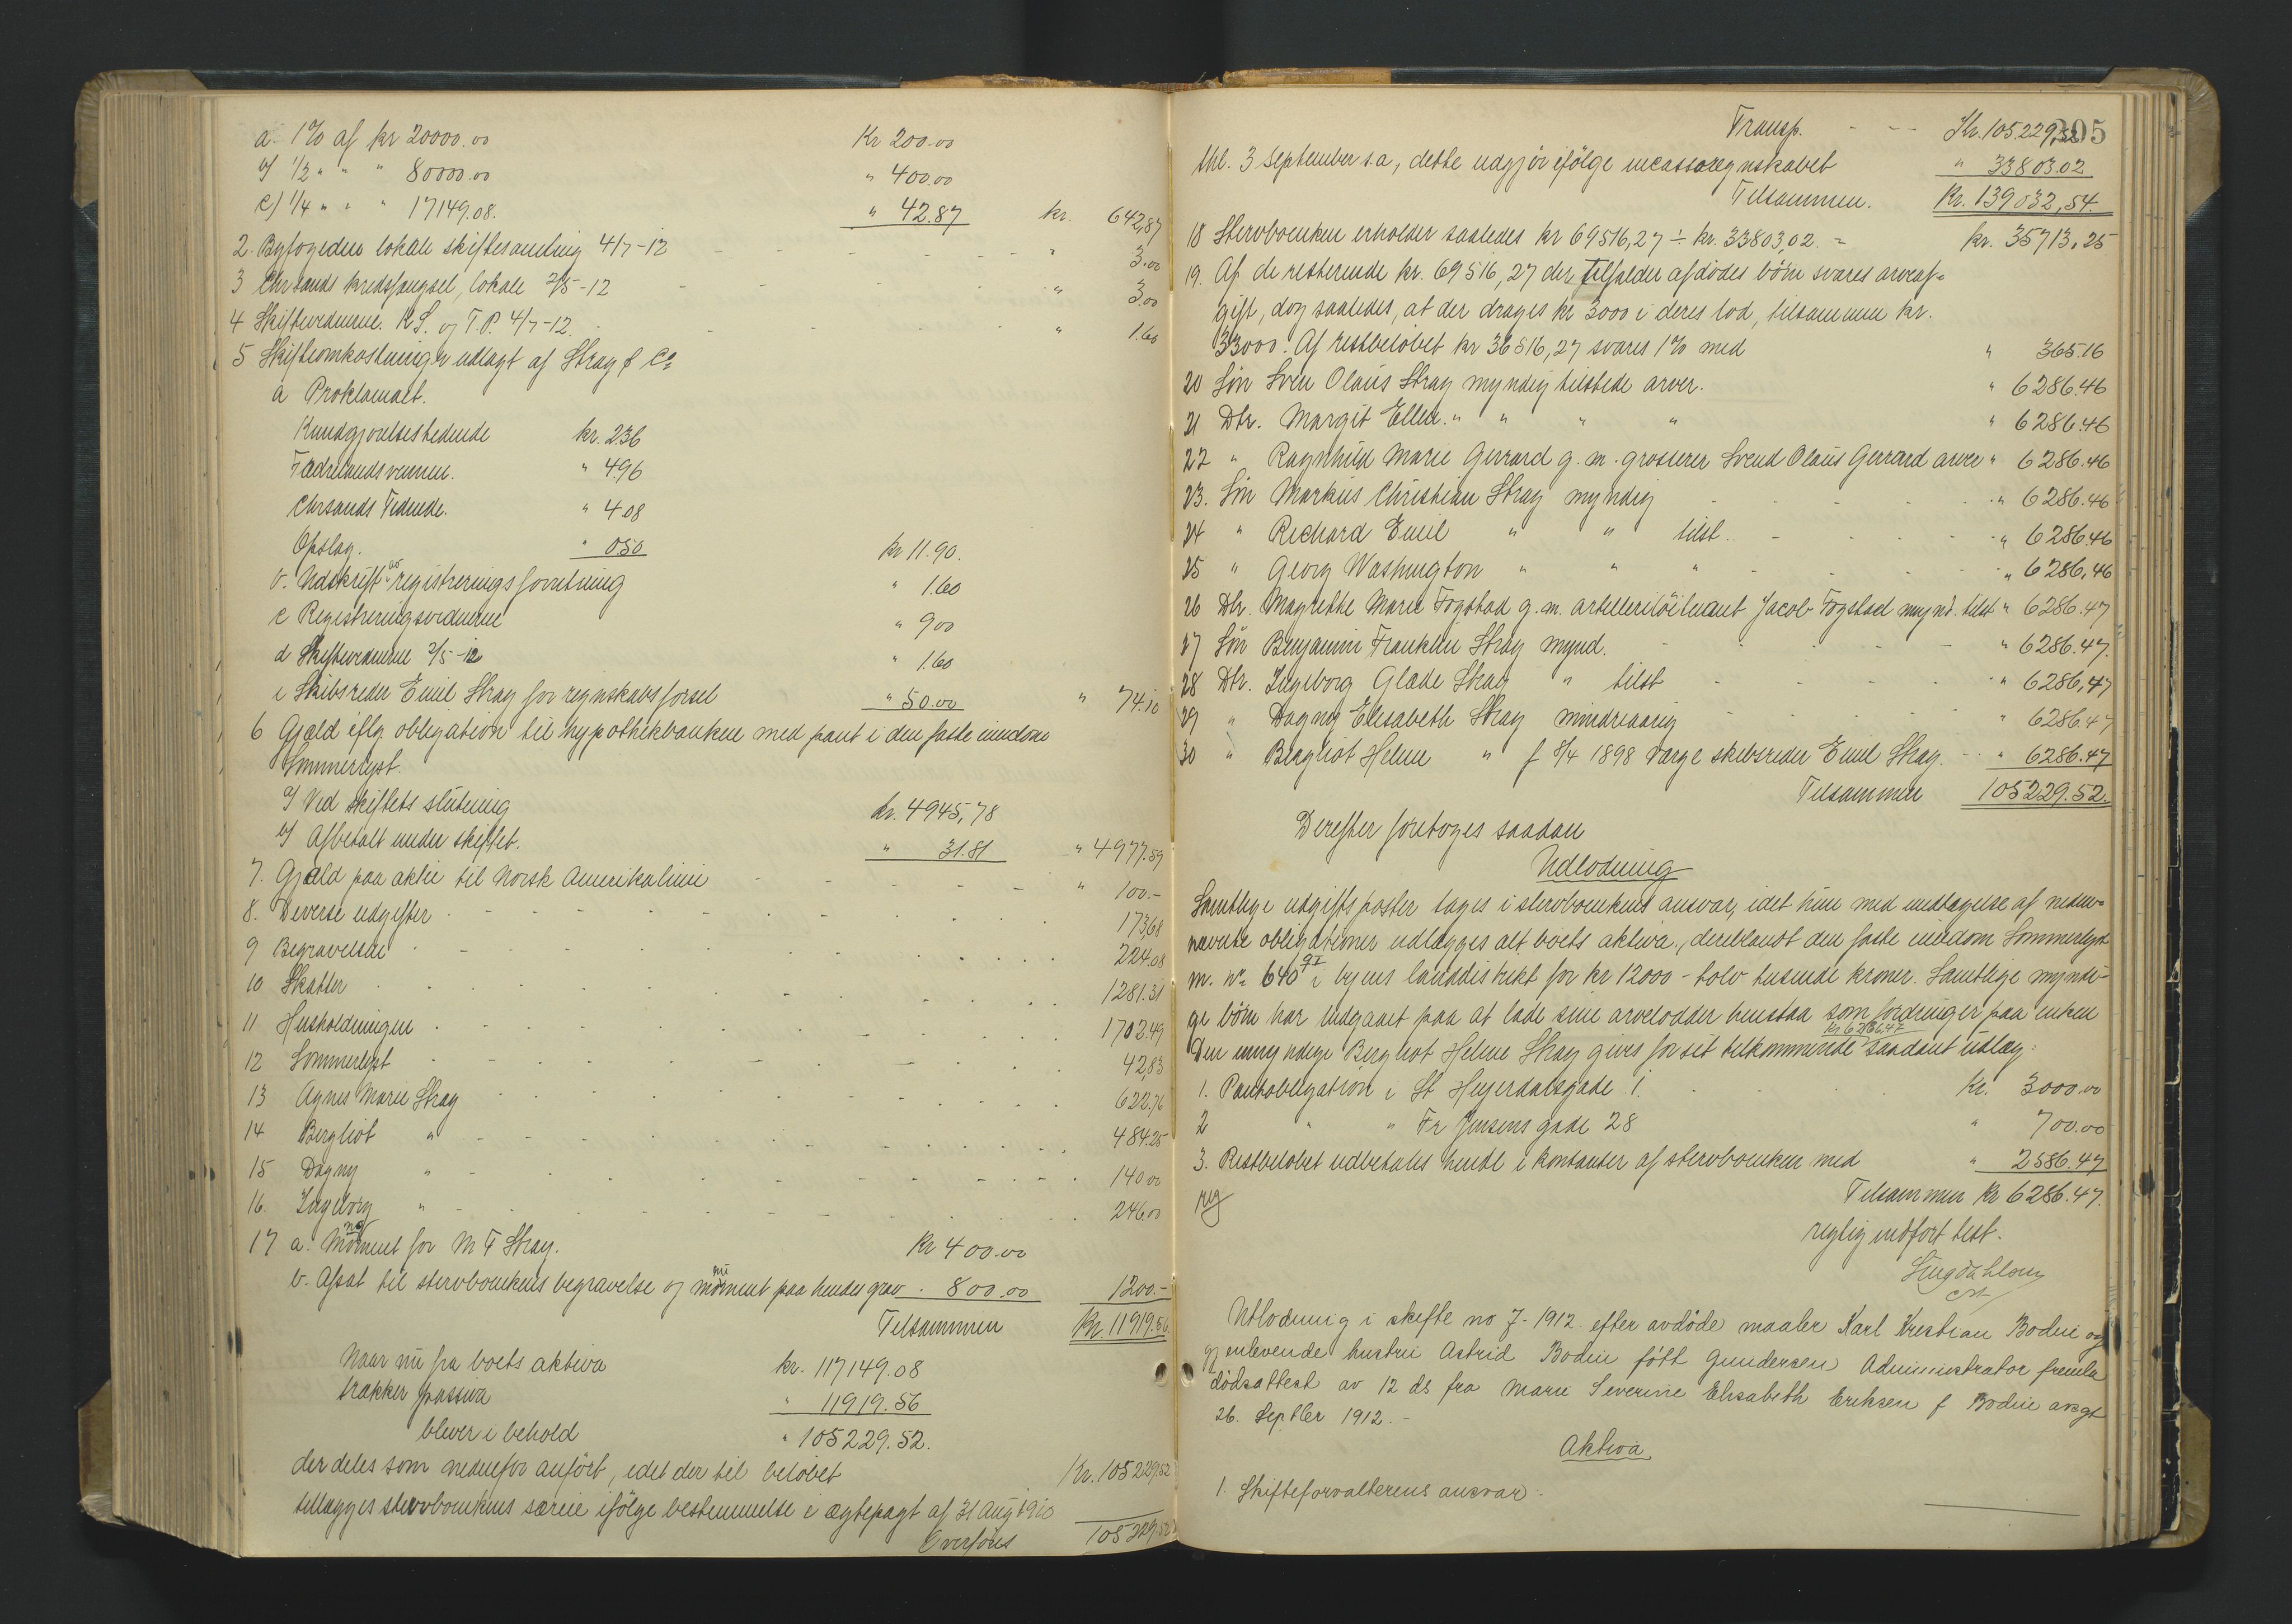 a. 1% af kr 20000.00 Kr 200.00
b/ 1/2 " " " 80000.00 " 400.00
c/ 1/4 " " " 17149.08. " 42.87 kr. 642,87
2. Byfogedens lokale skiftesamling 4/7-12 " 3.00
3 Chrsands kredsfængsel, lokale 2/5-12 " 3.00
4 Skiftevidnerne K.S. og T.P. 4/7-12. " 1.60
5 Skifteomkostninger udlagt af Stray & Co
a Proklamaet.
Kundgjørelsestidende kr. 2.36
Fædrelandsvennen. " 4.96
Chrsands Tidende. " 4.08
Opslag. " 0.50 kr 11.90.
b. Udskrift av registreringsforretning " 1.60
c Registreringsvidnerne " 9.00
d Skiftevidnerne 2/5-12 " 1.60
e Skibsreder Emil Stray for regnskabsførsel " 50.00 " 74.10
6 Gjæld iflg. obligation til hypothekbanken med pant i den faste eiendom
Sommerlyst.
a/ Ved skiftets slutning kr. 4945,78
b/ Afbetalt under skiftet. " 31.81 " 4977.59
7. Gjæld paa aktie til Norsk Amerikalinie " 100.-
8. Diverse udgifter 173,68
9 Begravelsen 224.08
10 Skatter 1281.31
11 Husholdningen 1702.49
12 Sommerlyst 42,83
13 Agnes Marie Stray 622.76
14 Bergliot " 484.25
15 Dagny " 140.00
16. Ingeborg " 246.00
17 a. Monument for M F Stray. Kr 400.00
b. Afsat til stervboenkens begravelse og monument paa hendes grav . 800.00 1200.-
Tilsammen Kr 11919.56
Naar nu fra boets aktiva kr. 117149.08
trækker passiva " 11919.56
bliver i behold " 105229.52.
der deles som nedenfor anført, idet der til beløbet Kr. 105229,52
tillægges stervboenkens særeie ifølge bestemmelse i ægtepagt af 31 Aug 1910
Overføres 105229.52
205
Transp. Kr. 105229,52
thl. 3 September s.a., dette udgjør ifølge incassoregnskabet " 33803.02
Tilsammen. Kr. 139032,54.
18 Stervboenken erholder saaledes kr 69516,27 ÷ kr. 33803,02. = kr. 35713.25
19. Af de resterende kr. 69516,27 der tilfalder afdødes børn svares arveaf-
gift, dog saaledes, at der drages kr 3000 i deres lod, tilsammen kr.
33000. Af restbeløbet kr 36516,27 svares 1% med " 365.16
20 Søn Sven Olaus Stray myndig tilstede arver. " 6286.46
21 Dtr. Margit Ellen " " " " " 6286.46
22 " Ragnhild Marie Gerrard g. m. grosserer Svend Olaus Gerrard arver " 6286.46
23. Søn Markus Christian Stray myndig " 6286.46
24 " Richard Emil " " tilst. " 6286.46
25 " Georg Washington " " " " 6286,46
26 Dtr. Magrethe Marie Fogstad g. m. artilleriløitnant Jacob Fogstad mynd. tilst. " 6286.47
27 Søn Benjamin Franklin Stray mynd. " 6286.47.
28 Dtr. Ingeborg Glade Stray " tilst " 6286,47
29 " Dagny Elisabeth Stray mindreaarig " 6286.47
30 " Bergliot Helene " f 8/4 1898 Værge skibsreder Emil Stray. " 6286.47
Tilsammen 105229.52.
Derefter foretoges saadan
Udlodning
Samtlige udgiftsposter tages i stervboenkens ansvar, idet hun med undtagelse af neden-
nævnte obligationer udlægges alt boets aktiva, deriblandt den faste eiendom Sommerlyst
m. no 640 i byens landdistrikt for kr 12000 - tolv tusinde kroner. Samtlige myndi-
ge børn har indgaaet paa at lade sine arvelodder henstaa som fordringer paa enken
Den umyndige Bergliot Helene Stray gives for sit tilkommende kr 6286.47 saadant udlæg:
1. Pantobligation i St Heyerdalsgade 1. Kr. 3000.00
2 " " Fr Jensens gade 28 " 700.00
3. Restbeløbet udbetales hende i kontanter af stervboenken med " 2586.47
Tilsammen Kr 6286.47.
rigtig indført test.
Utlodning i skifte no 7-1912 efter avdøde maaler Karl Kristian Bodin og
gjenlevende hustru Astrid Bodin født Gundersen Administrator fremla
dødsattest av 12 ds fra Marie Severine Elisabeth Eriksen f Bodin avgt
26. Septbr 1912.-
Aktiva
1. Skifteforvalterens ansvar: